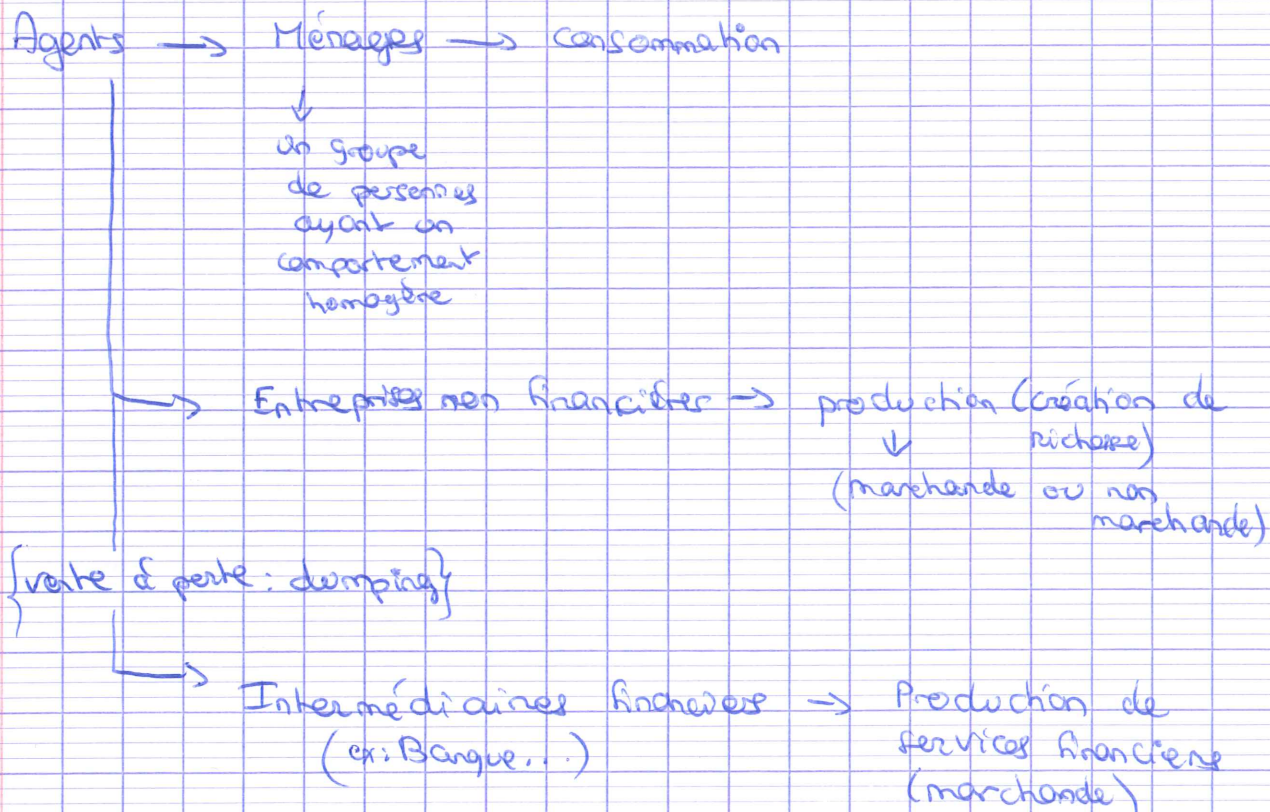 Agents → Ménages → consommation
↓
un groupe
de personnes
ayant un
comportement
homogène
→ Entreprises non financières → production (création de
richesse)
↓
(marchande ou non
marchande)
{vente à perte : dumping}
→ Intermédiaires financiers → Production de
(ex: Banque...)
services financiers
(marchande)